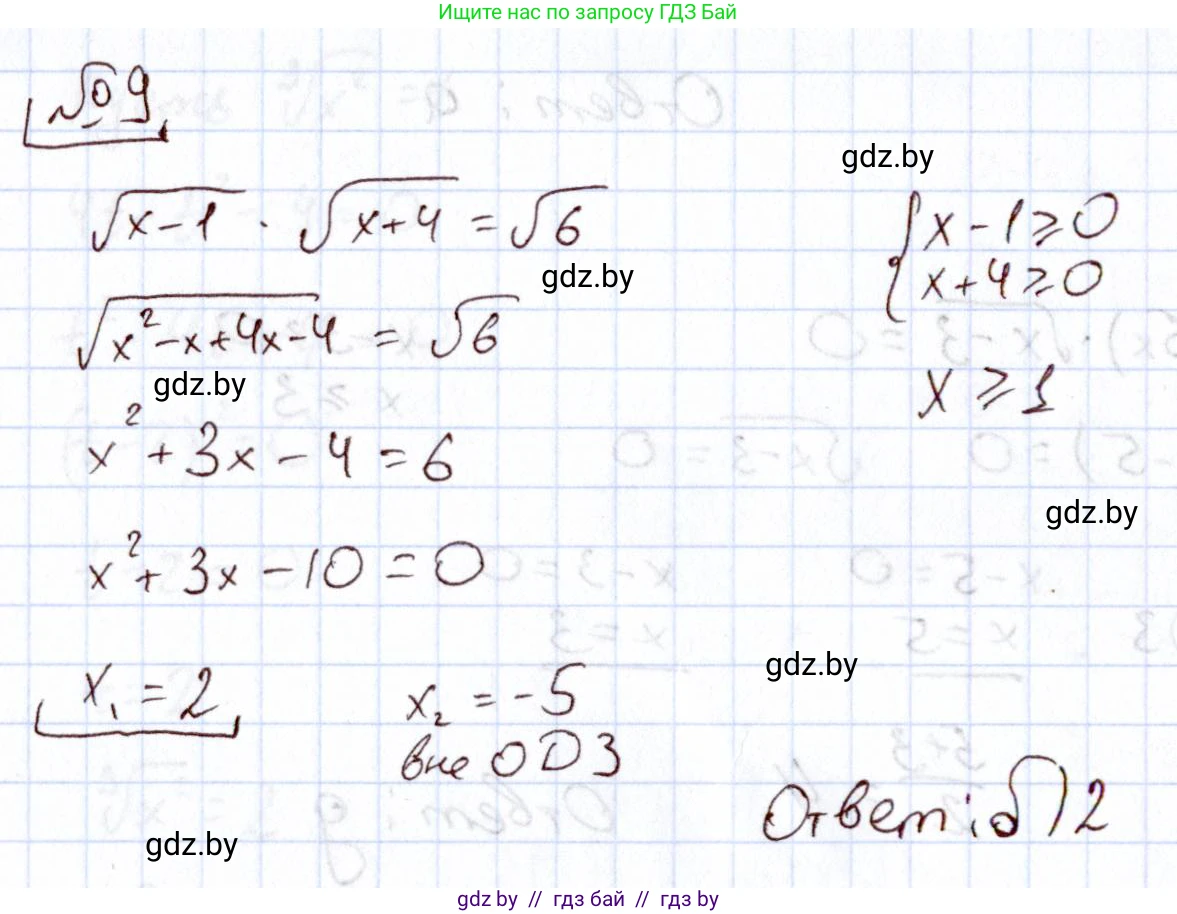 Ищите нас по запросу ГДЗ Бай
№9
gdz.by
√(x-1) · √(x+4) = √6
{x-1⩾0
x+4⩾0
gdz.by
√(x²-x+4x-4) = √6
x⩾1
gdz.by
x²+3x-4=6
gdz.by
x²+3x-10=0
gdz.by
x₁=2
x₂=-5
вне ОДЗ
Ответ: б) 2
gdz.by
gdz.by // гдз бай // гдз by